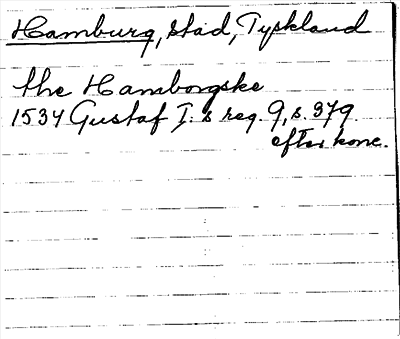 Hamburg, stad, Tyskland
the Hamborgske
1534 Gustaf I:s reg. 9, s. 379.
efter konc.